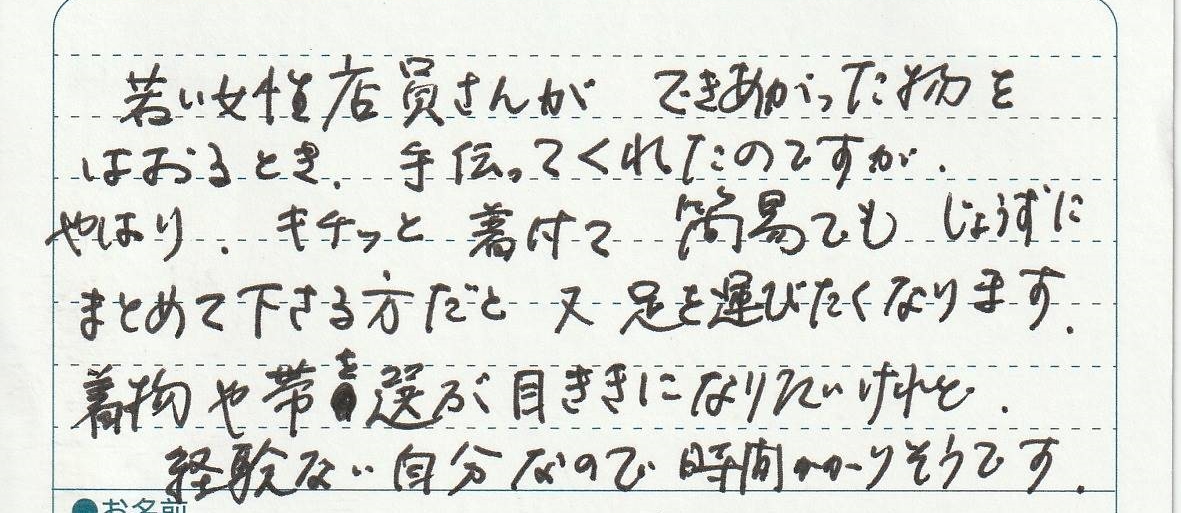 若い女性店員さんが できあがった物を
はおるとき、手伝ってくれたのですが、
やはり、キチッと 着付て 簡易でも じょうずに
まとめて下さる方だと 又 足を運びたくなります。
着物や帯を選ぶ目ききになりたいけれど、
経験ない自分なので時間かかりそうです。
●お名前